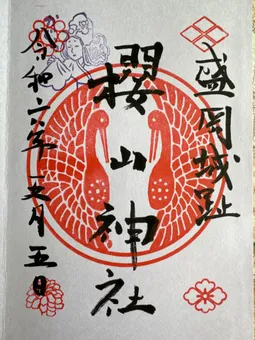 盛岡城趾
櫻山神社
令和六年一月五日